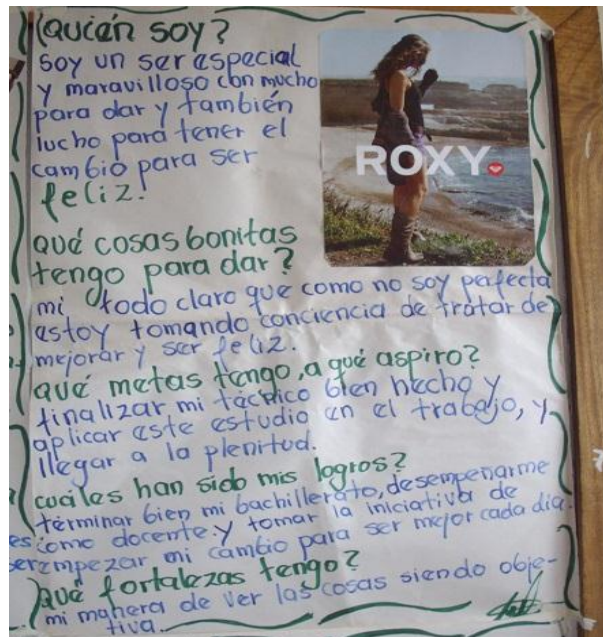 ¿Quién soy?
soy un ser especial
y maravilloso con mucho
para dar y también
lucho para tener el
cambio para ser
feliz.
ROXY
qué cosas bonitas
tengo para dar?
mi todo claro que como no soy perfecta
estoy tomando conciencia de tratar de
mejorar y ser feliz.
qué metas tengo, a qué aspiro?
finalizar mi técnico bien hecho y
aplicar este estudio en el trabajo, y
llegar a la plenitud.
cuáles han sido mis logros?
términar bien mi bachillerato, desempeñarme
como docente y tomar la iniciativa de
empezar mi cambio para ser mejor cada día.
Qué fortalezas tengo?
mi manera de ver las cosas siendo obje-
tiva.